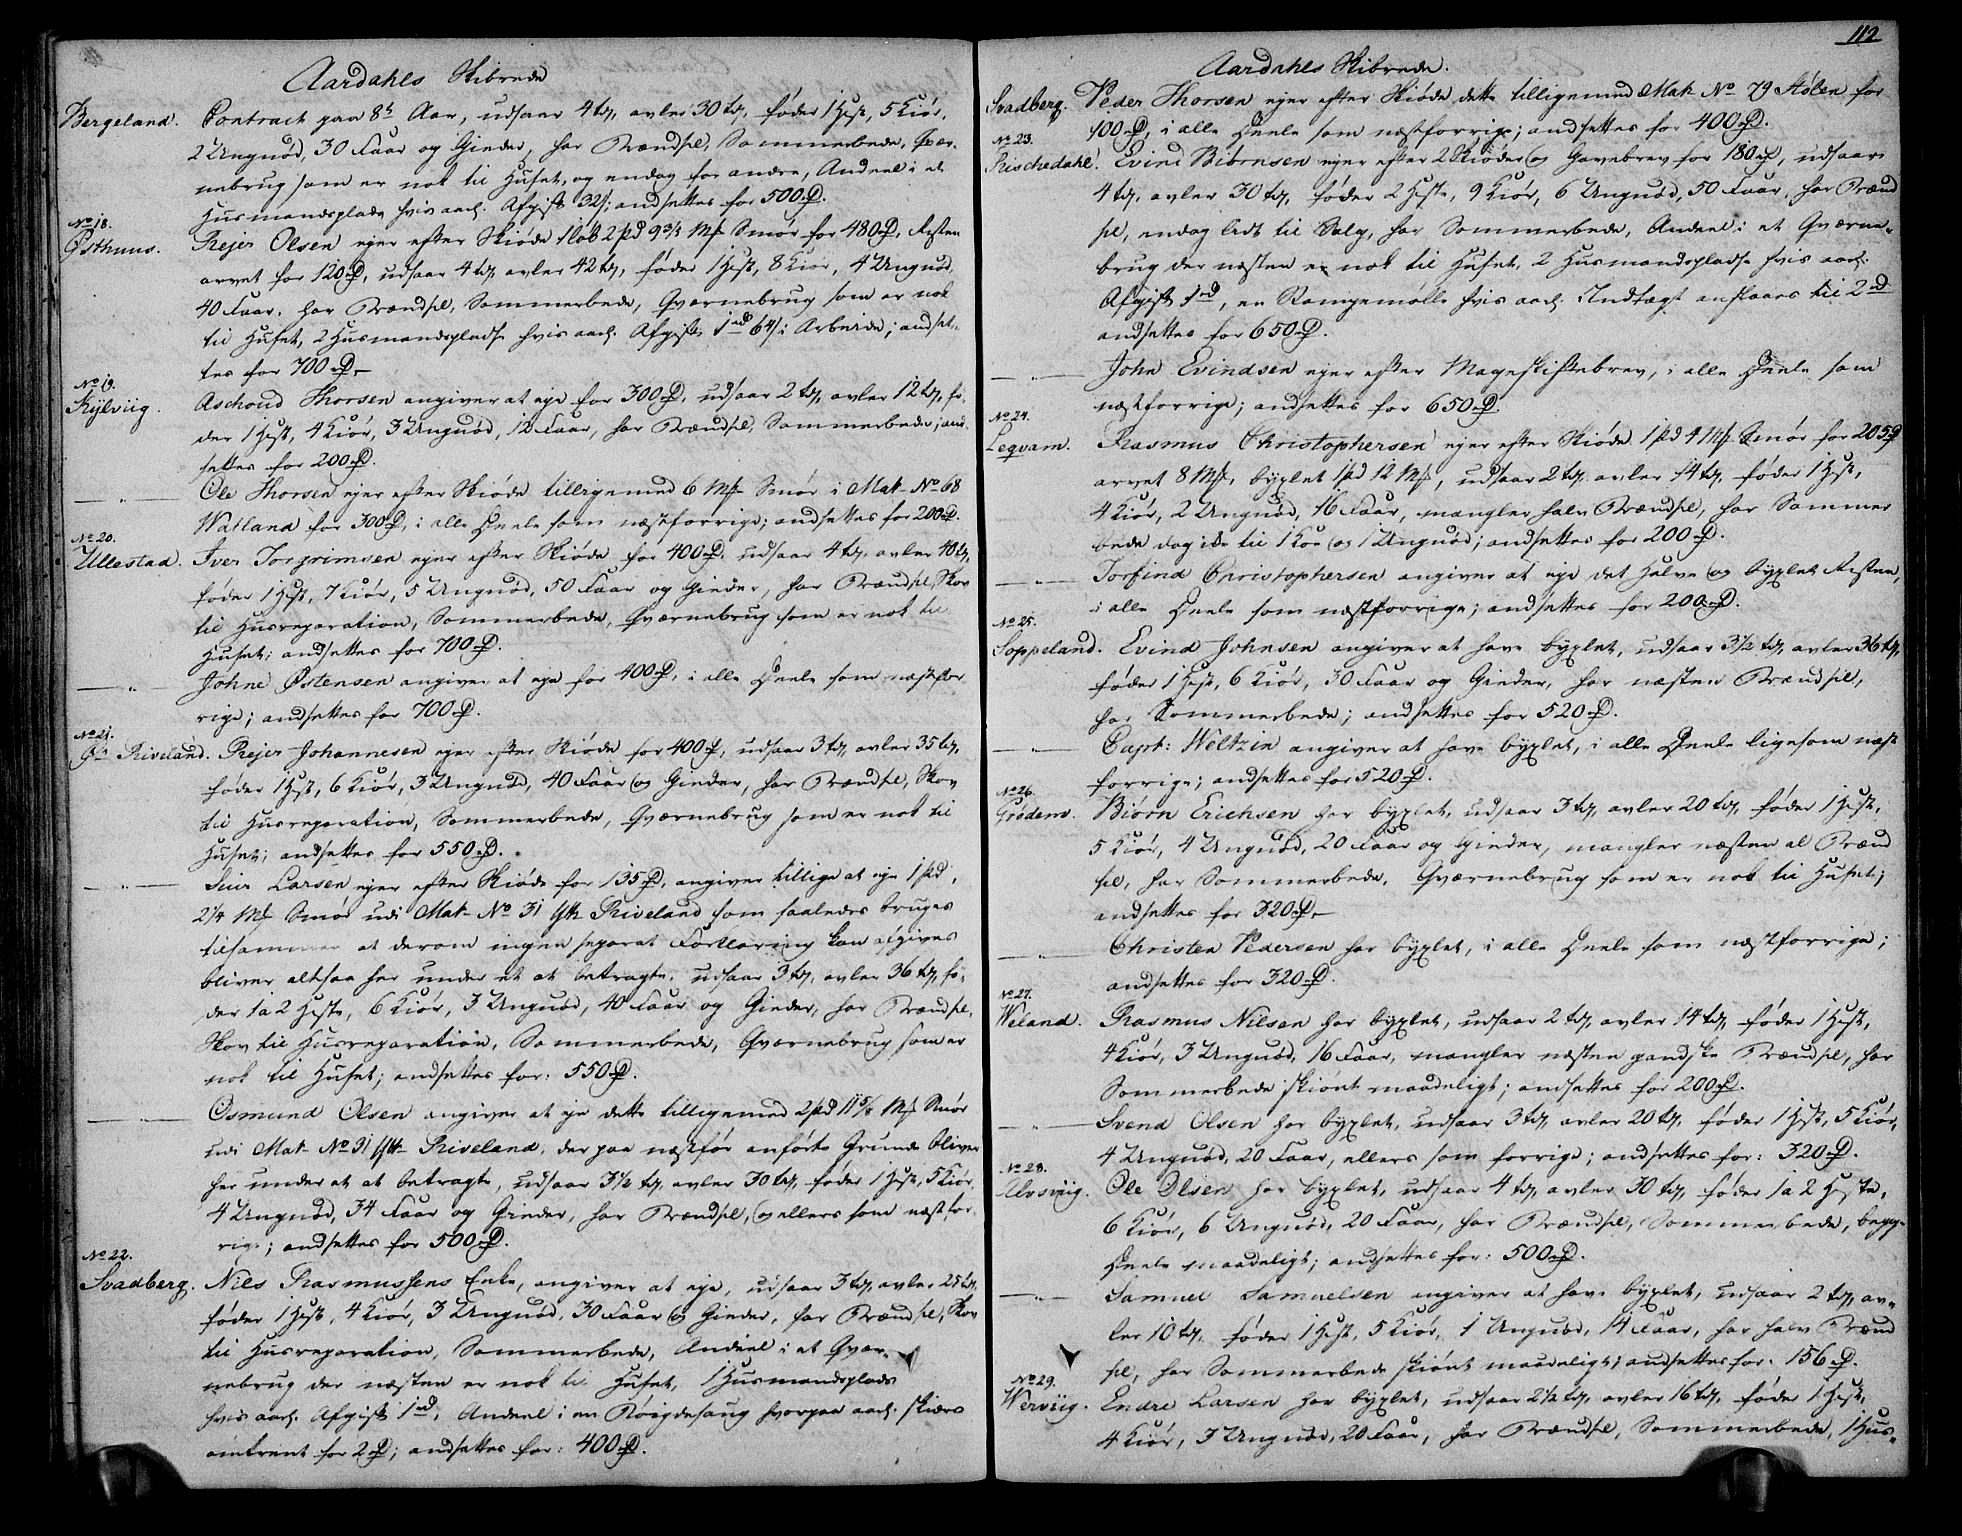 Aardahls Skibrede
Bergeland. Contract paa 8te Aar, udsaar 4 td, avler 30 td, føder 1 Hest, 5 Kiør,
2 Ungnød, 30 Faar og Gieder, har Brændsel, Sommerbede, Qvær-
nebrug som er nok til Huset, og endog for andre, Andeel i et
Husmandsplads hvis aarl. Afgift 32 s; andsættes for 500 rd.
No 18.
Østhuus. Rejer Olsen ejer efter Skiøde 1 løb 2 pd 9 3/4 Mk Smør for 480 rd, Resten
arvet for 120 rd, udsaar 4 td, avler 42 td, føder 1 Hest, 8 Kiør, 4 Ungnød,
40 Faar, har Brændsel, Sommerbede, Qværnebrug som er nok
til Huset, 2 Husmandspladse hvis aarl. Afgift 1 rd 64 s i Arbeide; andset-
tes for 700 rd.
No 19.
Kylviig. Aschoud Thorsen angiver at eje for 300 rd, udsaar 2 td, avler 12 td, fø-
der 1 Hest, 4 Kiør, 3 Ungnød, 12 Faar, har Brændsel, Sommerbede; and-
settes for 200 rd.
— " — Ole Thorsen ejer efter Skiøde tilligemed 6 Mk Smør i Mat. No 68
Watland for 300 rd, i alle Deele som næstforrige; andsettes for 200 rd.
No 20.
Ullestad. Iver Torgrimsen ejer efter Skiøde for 400 rd, udsaar 4 td, avler 40 td,
føder 1 Hest, 7 Kiør, 5 Ungnød, 50 Faar og Gieder, har Brændsel, Skov
til Husreparation, Sommerbede, Qværnebrug som er nok til
Huset; andsettes for 700 rd.
— " — Johne Østensen angiver at eje for 400 rd, i alle Deele som næstfor-
rige; andsettes for 700 rd.
No 21.
Riveland. Rejer Johannesen ejer efter Skiøde for 400 rd, udsaar 3 td, avler 35 td,
føder 1 Hest, 6 Kiør, 3 Ungnød, 40 Faar og Gieder, har Brændsel, Skov
til Husreparation, Sommerbede, Qværnebrug som er nok til
Huset; andsettes for 550 rd.
— " — Siur Larsen ejer efter Skiøde for 135 rd, angiver tillige at eje 1 pd,
2 1/4 Mk Smør udi Mat. No 31 Riveland som saaledes bruges
tilsammen at derom ingen separat Forklaring kan afgives
bliver altsaa her under et at betragte, udsaar 3 td, avler 36 td, fø-
der 1 a 2 Heste, 6 Kiør, 3 Ungnød, 40 Faar og Gieder, har Brændsel,
Skov til Husreparation, Sommerbede, Qværnebrug som er
nok til Huset; andsettes for: 550 rd.
— " — Osmund Olsen angiver at eje dette tilligemed 2 pd 11 5/8 Mk Smør
udi Mat. No 31 Riveland, der paa næstfør anførte Grunde bliver
her under et at betragte, udsaar 3 1/2 td, avler 30 td, føder 1 Hest, 5 Kiør,
4 Ungnød, 34 Faar og Gieder, har Brændsel, og ellers som næstfor-
rige; andsettes for 500 rd.
No 22.
Svadberg. Niels Rasmussens Enke, angiver at eje, udsaar 3 td, avler 25 td,
føder 1 Hest, 4 Kiør, 3 Ungnød, 30 Faar og Gieder, har Brændsel, Skov
til Husreparation, Sommerbede, Andeel i et Qvær-
nebrug der næsten er nok til Huset, 1 Husmandsplads
hvis aarl. Afgift 1 rd, Andeel i en Bøigdesaug hvorpaa aarl. skiæres
omtrent for 2 rd; andsettes for: 400 rd.
112
Aardahls Skibrede.
Svadberg. Peder Thorsen ejer efter Skiøde dette tilligemed Mat. No 79 Hølen for
100 rd, i alle Deele som næstforrige; andsettes for 400 rd.
No 23.
Rischedahl. Evind Biørnsen ejer efter 2 Skiøder og Gavebrev for 180 rd, udsaar
4 td, avler 30 td, føder 2 Heste, 9 Kiør, 6 Ungnød, 50 Faar, har Brænd-
sel, endog lidt til Salg, har Sommerbede, Andeel i et Qværne-
brug der næsten er nok til Huset, 2 Husmandspladse hvis aarl.
Afgift 1 rd, en Stampemølle hvis aarl. Indtægt anslaaes til 2 rd
andsettes for 650 rd.
— " — John Evindsen ejer efter Mageskiftebrev, i alle Deele som
næstforrige; andsettes for 650 rd.
No 24.
Leqvam. Rasmus Christophersen ejer efter Skiøde 1 pd 4 Mk Smør for 205 rd
arvet 8 Mk, byxlet 1 pd 12 Mk, udsaar 2 td, avler 14 td, føder 1 Hest,
4 Kiør, 2 Ungnød, 16 Faar, mangler halv Brændsel, har Sommer
bede dog ike til 1 Koe og 1 Ungnød; andsettes for 200 rd.
— " — Torfind Christophersen angiver at eje det Halve og byxlet Resten,
i alle Deele som næstforrige; andsettes for 200 rd.
No 25.
Soppeland. Evind Johnsen angiver at have byxlet, udsaar 3 1/2 td, avler 36 td,
føder 1 Hest, 6 Kiør, 30 Faar og Gieder, har næsten Brændsel,
har Sommerbede; andsettes for 520 rd.
— " — Capt: Weltzin angiver at have byxlet, i alle Deele ligesom næst
forrige; andsettes for 520 rd.
No 26.
Frødem. Biørn Erichsen har byxlet, udsaar 3 td, avler 20 td, føder 1 Hest,
5 Kiør, 4 Ungnød, 20 Faar og Gieder, mangler næsten al Brænd
sel, har Sommerbede, Qværnebrug som er nok til Huset;
andsettes for 320 rd.
— " — Christen Pedersen har byxlet, i alle Deele som næstforrige;
andsettes for 320 rd.
No 27.
Weland. Rasmus Nilsen har byxlet, udsaar 2 td, avler 14 td, føder 1 Hest,
4 Kiør, 3 Ungnød, 16 Faar, mangler næsten gandske Brændsel, har
Sommerbede skiønt maadeligt; andsettes for 200 rd.
— " — Svend Olsen har byxlet, udsaar 3 td, avler 20 td, føder 1 Hest, 5 Kiør,
4 Ungnød, 20 Faar, ellers som forrige; andsettes for: 320 rd.
No 28.
Alvsviig. Ole Olsen har byxlet, udsaar 4 td, avler 30 td, føder 1 a 2 Heste,
6 Kiør, 6 Ungnød, 20 Faar, har Brændsel, Sommerbede, begge
Deele maadeligt; andsettes for: 500 rd.
— " — Samuel Samuelsen angiver at have byxlet, udsaar 2 td, av-
ler 10 td, føder 1 Hest, 5 Kiør, 1 Ungnød, 14 Faar, har halv Brænd
sel, har Sommerbede skiønt maadeligt; andsettes for: 156 rd.
No 29.
Werviig. Endre Larsen har byxlet, udsaar 2 1/2 td, avler 16 td, føder 1 Hest,
4 Kiør, 3 Ungnød, 20 Faar, har Brændsel, Sommerbede, 1 Hus-